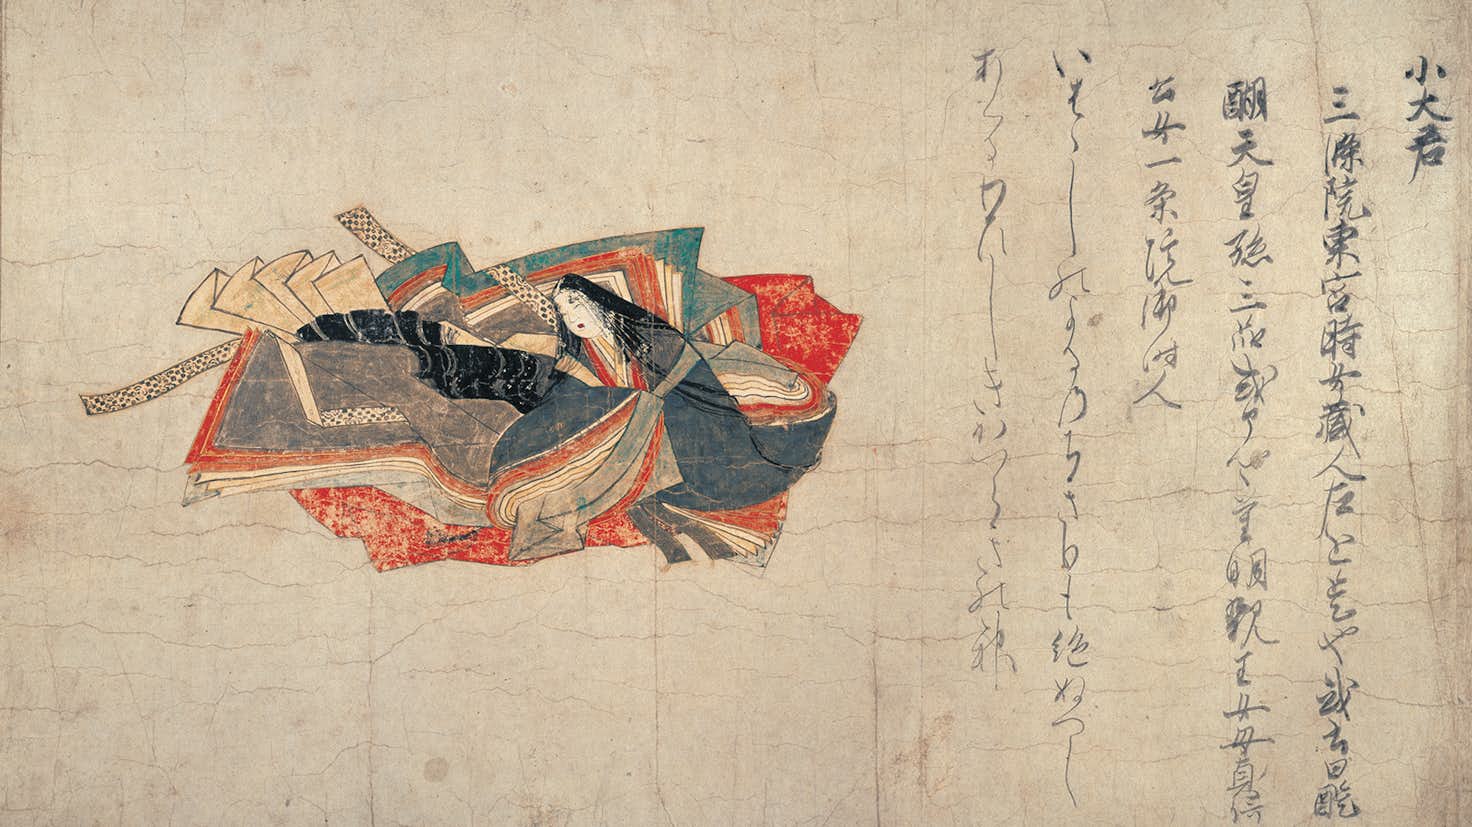 小大君
三條院東宮時女蔵人左近是也或書曰醍
醐天皇孫三品式ア卿重明親王女母貞信
公女一条院御時人
いはゝしのよるのちきりも絶ぬへし
あくるわひしきかつらきの神